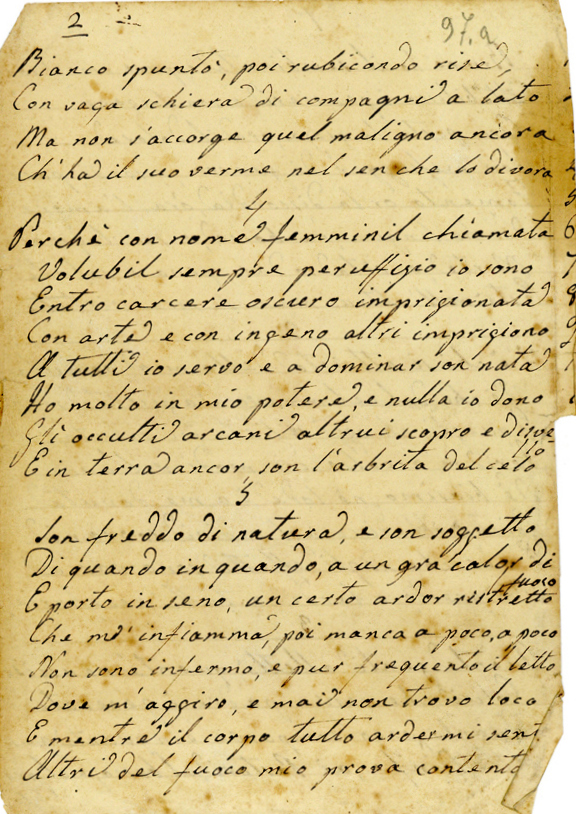 2
97.a
Bianco spuntò, poi rubicondo rise,
Con vaga schiera di compagni a lato
Ma non s'accorge quel maligno ancora
Ch'ha il suo verme nel sen che lo divora
4
Perchè con nome femminil chiamata
Volubil sempre per uffizio io sono
Entro carcere oscuro imprigionata
Con arte e con ingeno altri imprigiono
A tutti io servo e a dominar son nata
Ho molto in mio potere, e nulla io dono
Gli occulti arcani altrui scopro e disve-
lo
E in terra ancor, son l'arbrita del celo
5
Son freddo di natura, e son soggetto
Di quando in quando, a un gra calor di
fuoco
E porto in seno, un certo ardor ristretto
Che m'infiamma, poi manca a poco, a poco
Non sono infermo, e pur frequento il letto
Dove m'aggiro, e mai non trovo loco
E mentre il corpo tutto ardermi sent
Altri del fuoco mio prova contento